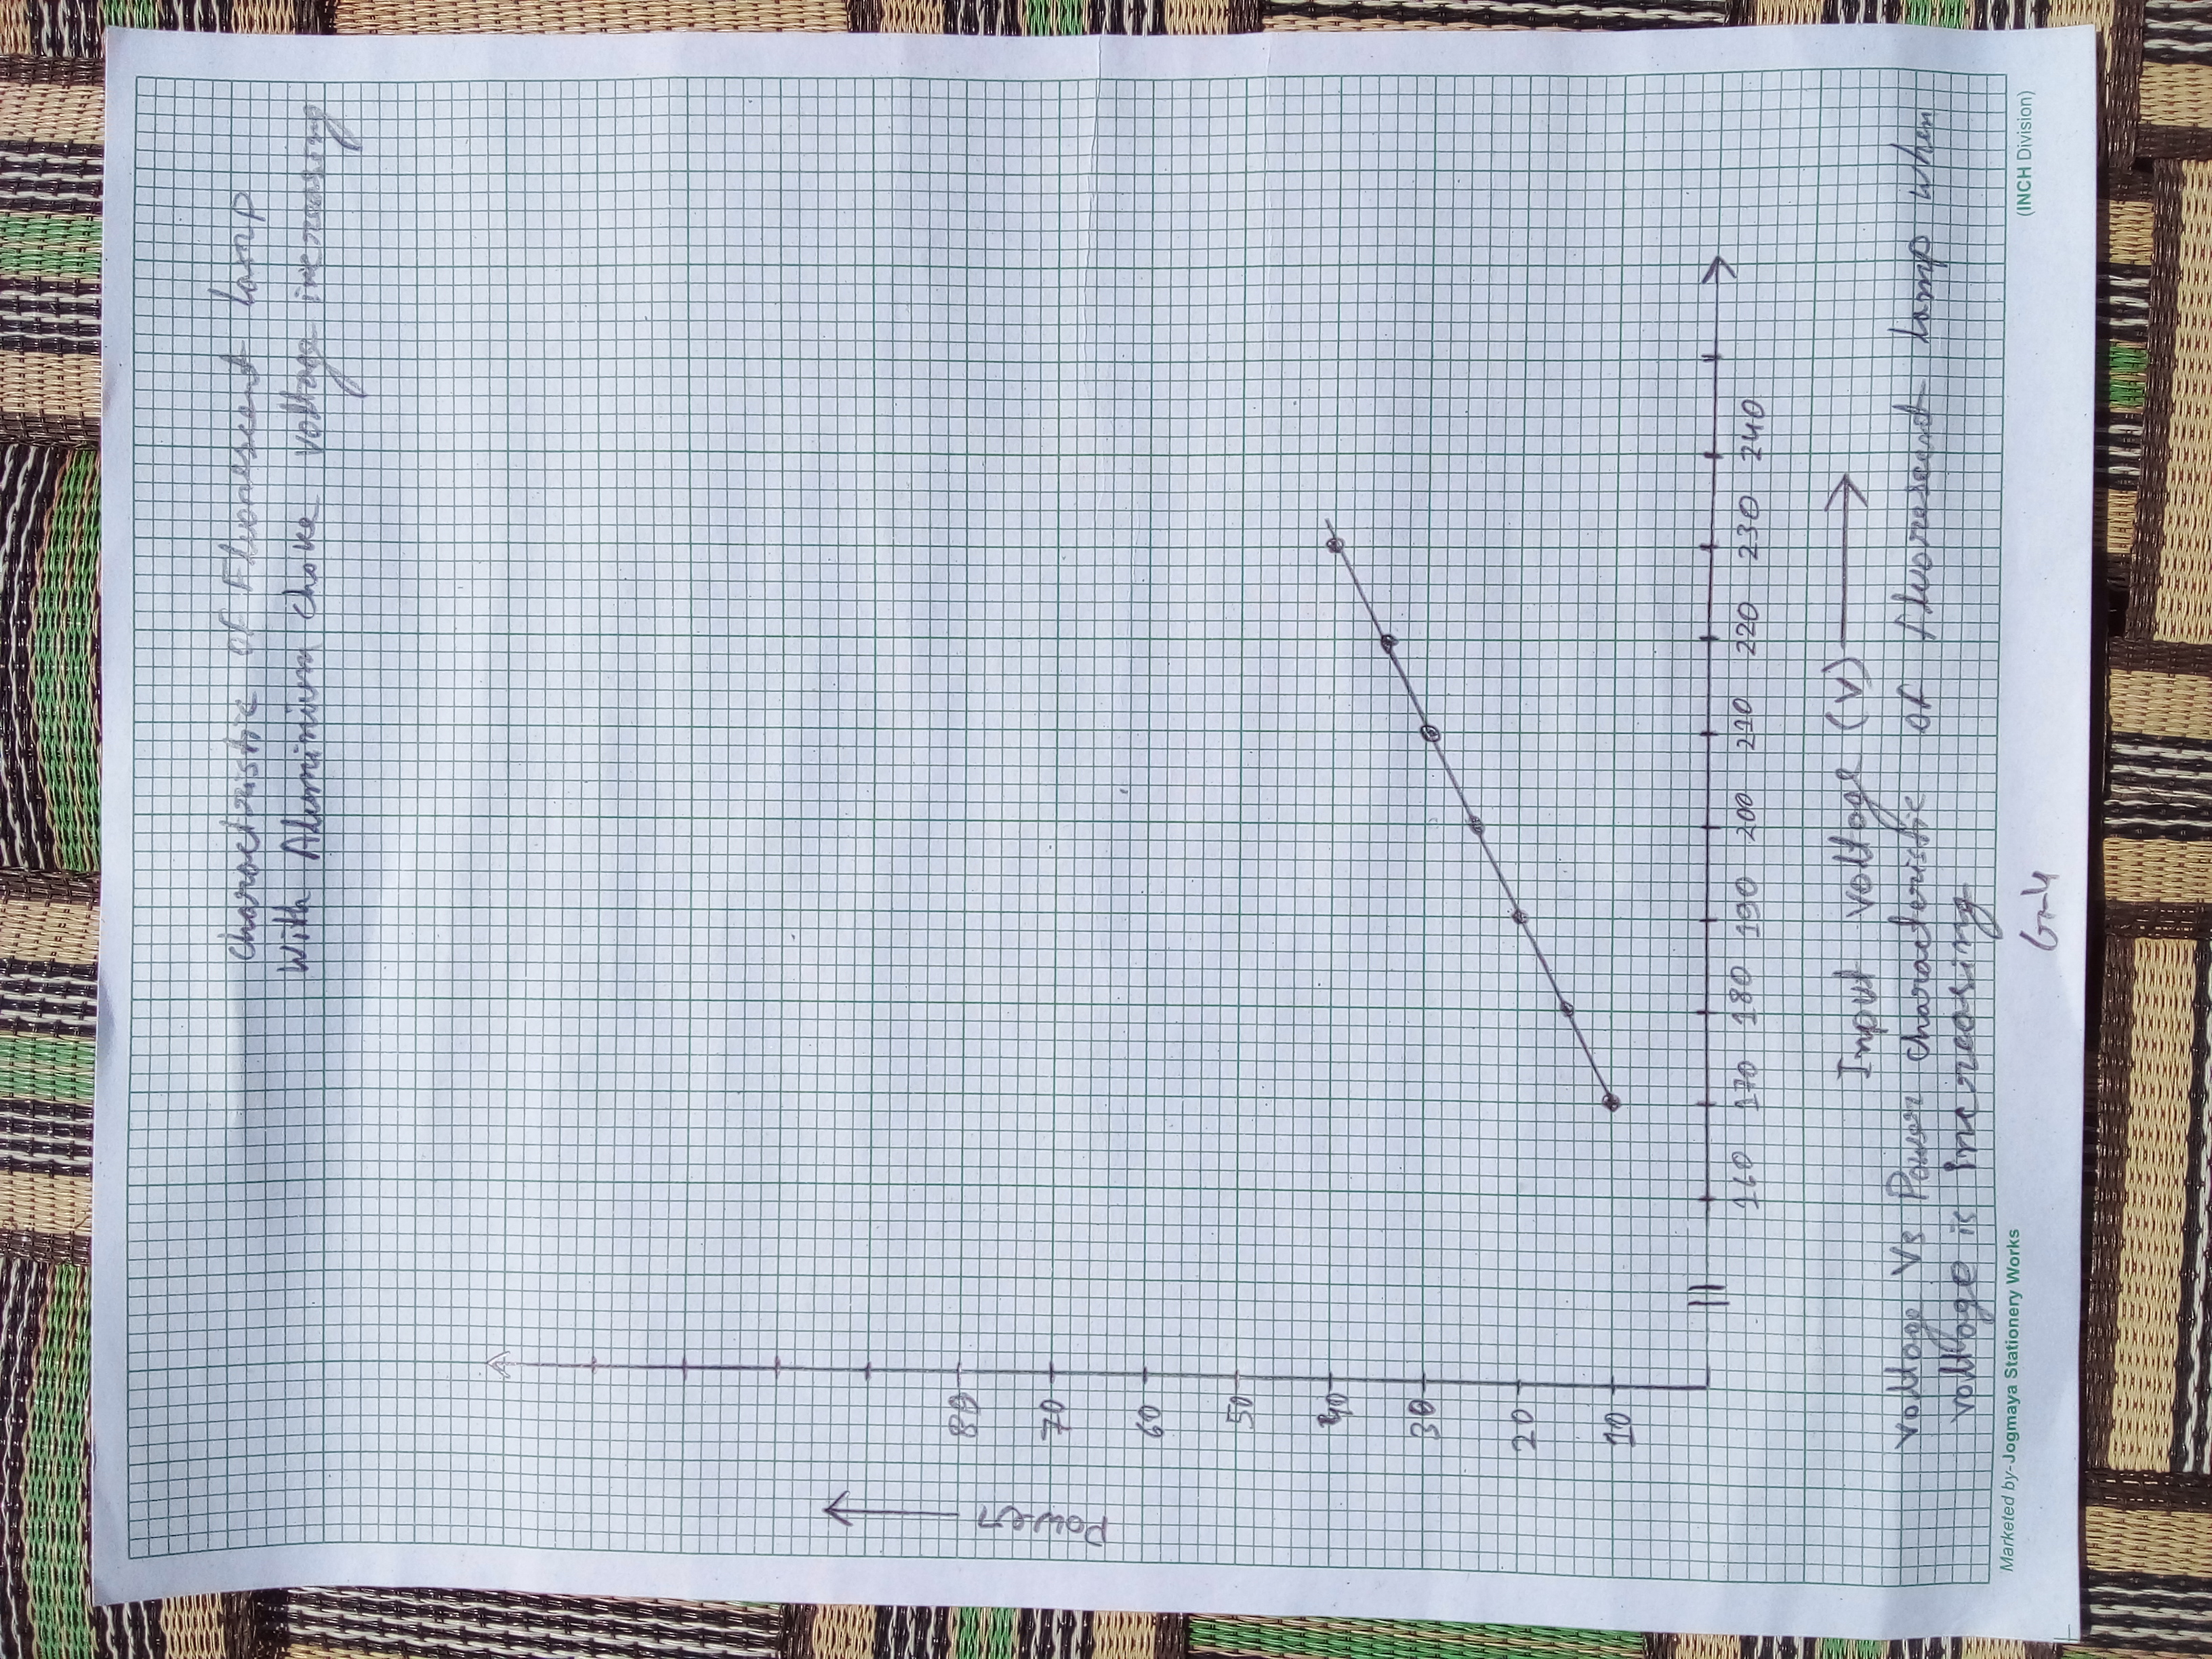 charactristic of Fluorescent lamp
With Aluminium choke voltage increasing
Power
80
70
60
50
40
30
20
10
160 170 180 190 200 210 220 230 240
Input voltage (V)
voltage Vs Power characteristic of fluorescent lamp when
voltage is increasing
Marketed by-Jogmaya Stationery Works
(INCH Division)
G-4